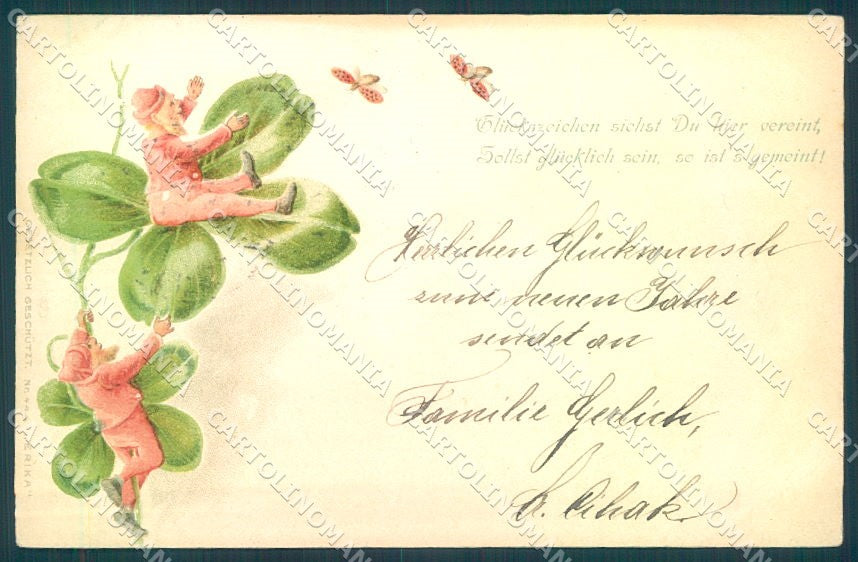 Glückszeichen siehst Du hier vereint,
Sollst glücklich sein, so ist's gemeint!
Herzlichen Glückwunsch
zum neuen Jahre
sendet an
Familie Gerlich,
GESCHÜTZT. No
CARTOLINOMANIA